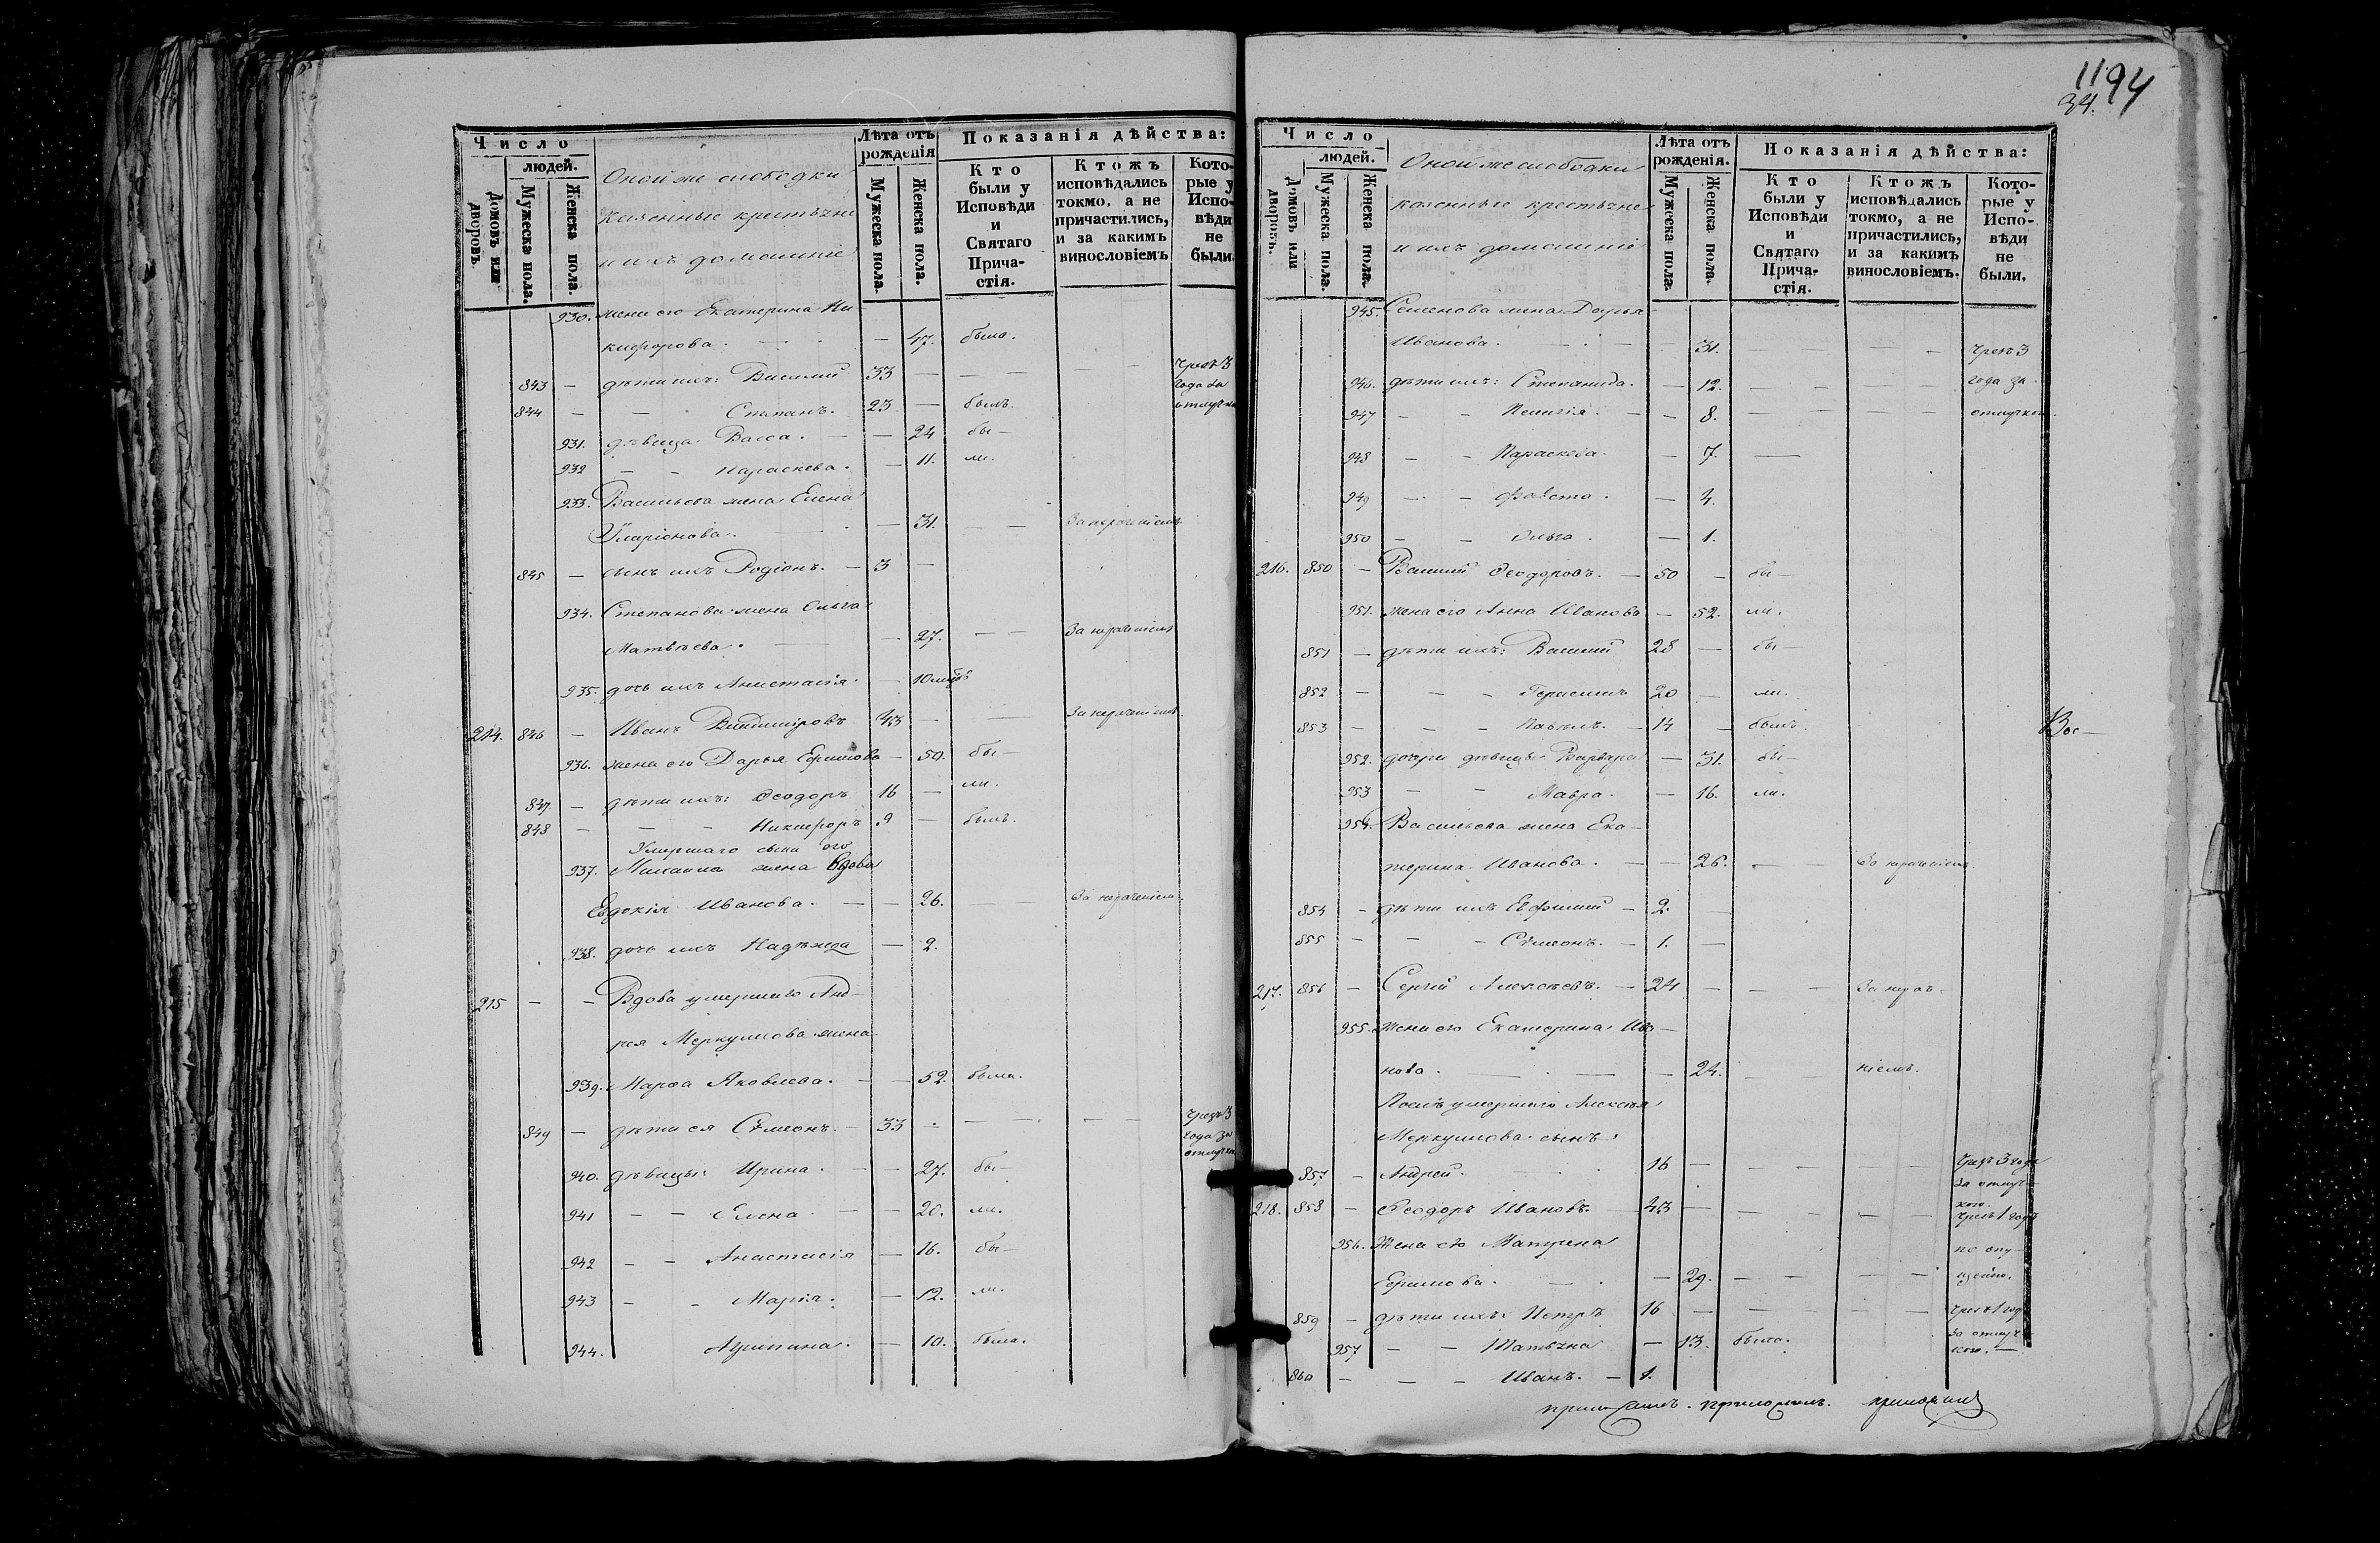 1194
34.
Число
людей.
Домовъ или дворовъ.
Мужеска пола.
Женска пола.
Оной же слободки
казенные крестьяне
и ихъ домашніе
Лѣта отъ рожденія
Мужеска пола.
Женска пола.
Показанія дѣйства:
Кто были у Исповѣди и Святаго Причастія.
Ктожъ исповѣдались токмо, а не причастились, и за какимъ винословіемъ
Которые у Исповѣди не были.
930. жена его Екатерина Ни-
кифорова. — 47. была.
843 — дѣти ихъ: Василій 33 — — — — — чрезъ 3 года за отлучк
844 — — Степанъ. 23 — былъ.
931. дѣвица Васса. — — 24 бы—
932 — — Параскева. — 11. ли.
933. Васильева жена Елена
Иларіонова. — 31. — — За нераченіемъ
845 — сынъ ихъ Родіонъ. — 3 —
934. Степанова жена Ольга
Матвѣева. — — 27. — — За нераченіемъ
935. дочь ихъ Анастасія. — 10 мцов
214. 846 — Иванъ 43 — — За нераченіемъ
936. жена его Дарья Ефимова — 50. бы—
847 — дѣти ихъ: Ѳеодоръ 16 — ли.
848 — — — Никифоръ 9 — былъ.
Умершаго сына его
937. Михаила жена вдова
Евдокія Иванова. — — 26. — — За нераченіем.
938. дочь ихъ Надѣжда — 2.
215 — — Вдова умершаго Анд-
рея Меркулова жена
939. Марѳа Яковлева. — — 52. была.
849 — дѣти ея Сѵмеонъ. — 33 — — — — чрезъ 3 года за отлучк
940. дѣвицы: Ирина. — — 27. бы—
941 — — Елена. — — 20. ли.
942 — — Анастасія — 16. бы—
943 — — Марія. — 12. ли.
944. Агрипина. — 10. была.
Число
людей.
Домовъ или дворовъ.
Мужеска пола.
Женска пола.
Оной же слободки
казенные крестьяне
и ихъ домашніе
Лѣта отъ рожденія.
Мужеска пола.
Женска пола.
Показанія дѣйства:
Кто были у Исповѣди и Святаго Причастія.
Ктожъ исповѣдались токмо, а не причастились, и за какимъ винословіемъ.
Которые у Исповѣди не были.
945. Семенова жена Дарья
Иванова. — 31. — — — чрезъ 3
946. дѣти ихъ: Степанида. — 12. — — — года за
947 — — Пелагія. — — 8. — — — — отлучкою.
948 — — Параскева. — 7. —
949 — — Фавста. — 4.
950 — — Ольга. — 1.
216. 850 — Василій Ѳеодоровъ. — 50 — бы—
951. жена его Анна Иванова — 52. ли.
851 — дѣти ихъ: Василій 28 — бы—
852 — — — Герасимъ 20 — ли.
853 — — — Павелъ. — 14 — былъ.
Вос—
952. дочери дѣвицы Варвара — 31. бы—
953 — — Мавра. — 16. ли.
954. Васильева жена Ека-
терина Иванова. — — 26. — — За нераченіемъ.
854 — дѣти ихъ Евфимій — 2. —
855 — — — Сѵмеонъ. — 1. —
217. 856 — Сергій Алексѣевъ. — 24 — — — За нерач-
955. Жена его Екатерина Ива-
нова. — — — 24. — — ніемъ.
Послѣ умершаго Алексѣя
Меркулова сынъ
857 — Андрей. 16 — — — чрезъ 3 года за отлуч кою.
218. 858 — Ѳеодоръ Ивановъ. — 43 — — — — — чрезъ 1 годъ
956. Жена его Матрена по опу-
Ефимова. — — 29. — — — — щенію.
859 — дѣти ихъ: Петръ 16 — — — — чрезъ 1 годъ за отлуч кою.
957 — — Татьяна — 13. была.
860 — — — Иванъ. — 1.